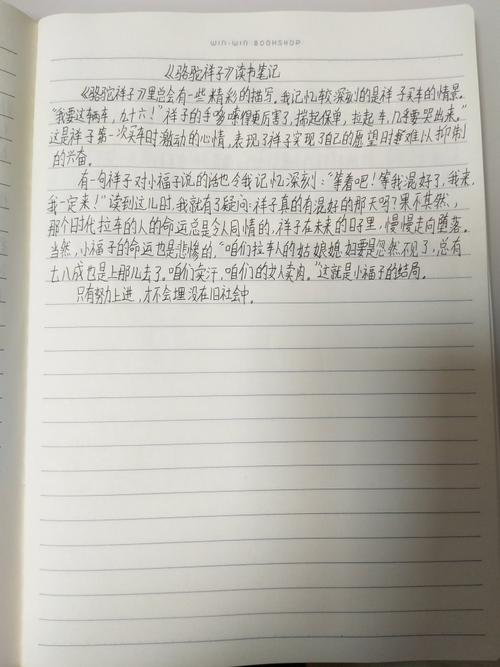 WIN-WIN BOOKSHOP
《骆驼祥子》读书笔记
《骆驼祥子》里总会有一些精彩的描写。我记忆较深刻的是祥子买车的情景。
“我要这辆车,九十六!”祥子的手哆嗦得更厉害了,揣起保单,拉起车,几乎要哭出来。”
这是祥子第一次买车时激动的心情,表现了祥子实现了自己的愿望时难以抑制
的兴奋。
有一句祥子对小福子说的话也令我记忆深刻:“等着吧!等我混好了,我来,
我一定来!”读到这儿时,我就有了疑问:祥子真的有混好的那天吗?果不其然,
那个时代拉车的人的命运总是令人同情的,祥子在未来的日子里,慢慢走向堕落。
当然,小福子的命运也是悲惨的,“咱们拉车人的姑娘媳妇要是忽然不见了,总有
七八成也是上那儿去了。咱们卖汗,咱们的女人卖肉。”这就是小福子的结局。
只有努力上进,才不会埋没在旧社会中。